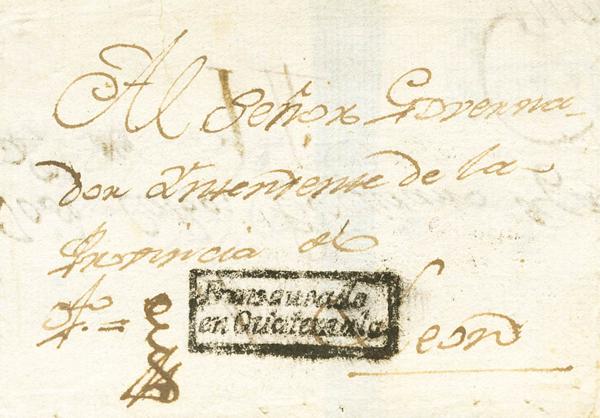 Al Señor Governa-
dor Yntendente de la
Provincia de
Leon
Franqueado
en Guatemala